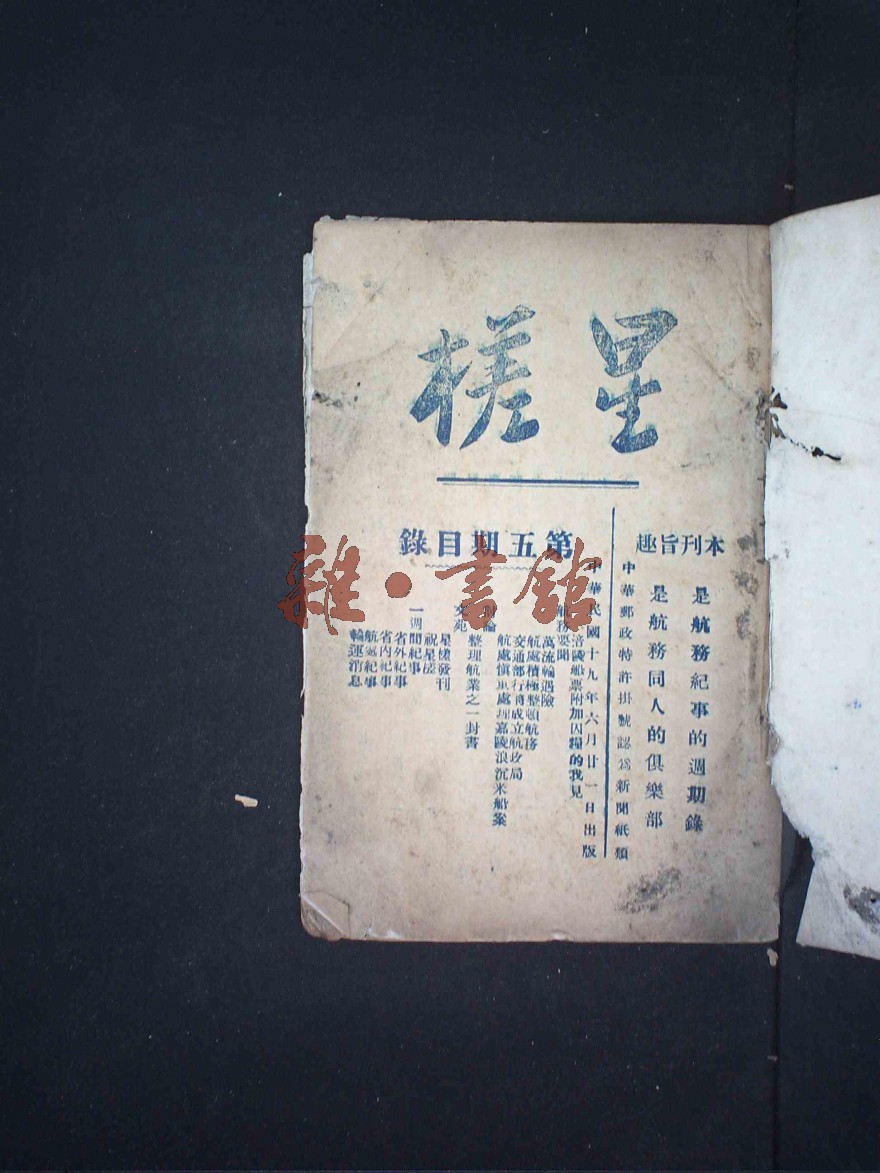 星槎
本刊旨趣
是航務紀事的週期錄
是航務同人的俱樂部
中華郵政特許掛號認為新聞紙類
中華民國十九年六月廿一日出版
第五期目錄
航務要聞
涪陵船票附加囚糧的我見
萬流輪遇險
航處積極整頓航務
交通部行將成立航政局
航處慎重處理嘉陵浪沉米船案
評論
整理航業之一封書
文苑
星槎發刊
祝星槎
一週間紀事
省外紀事
省內紀事
航處紀事
輪運消息
雜·書館